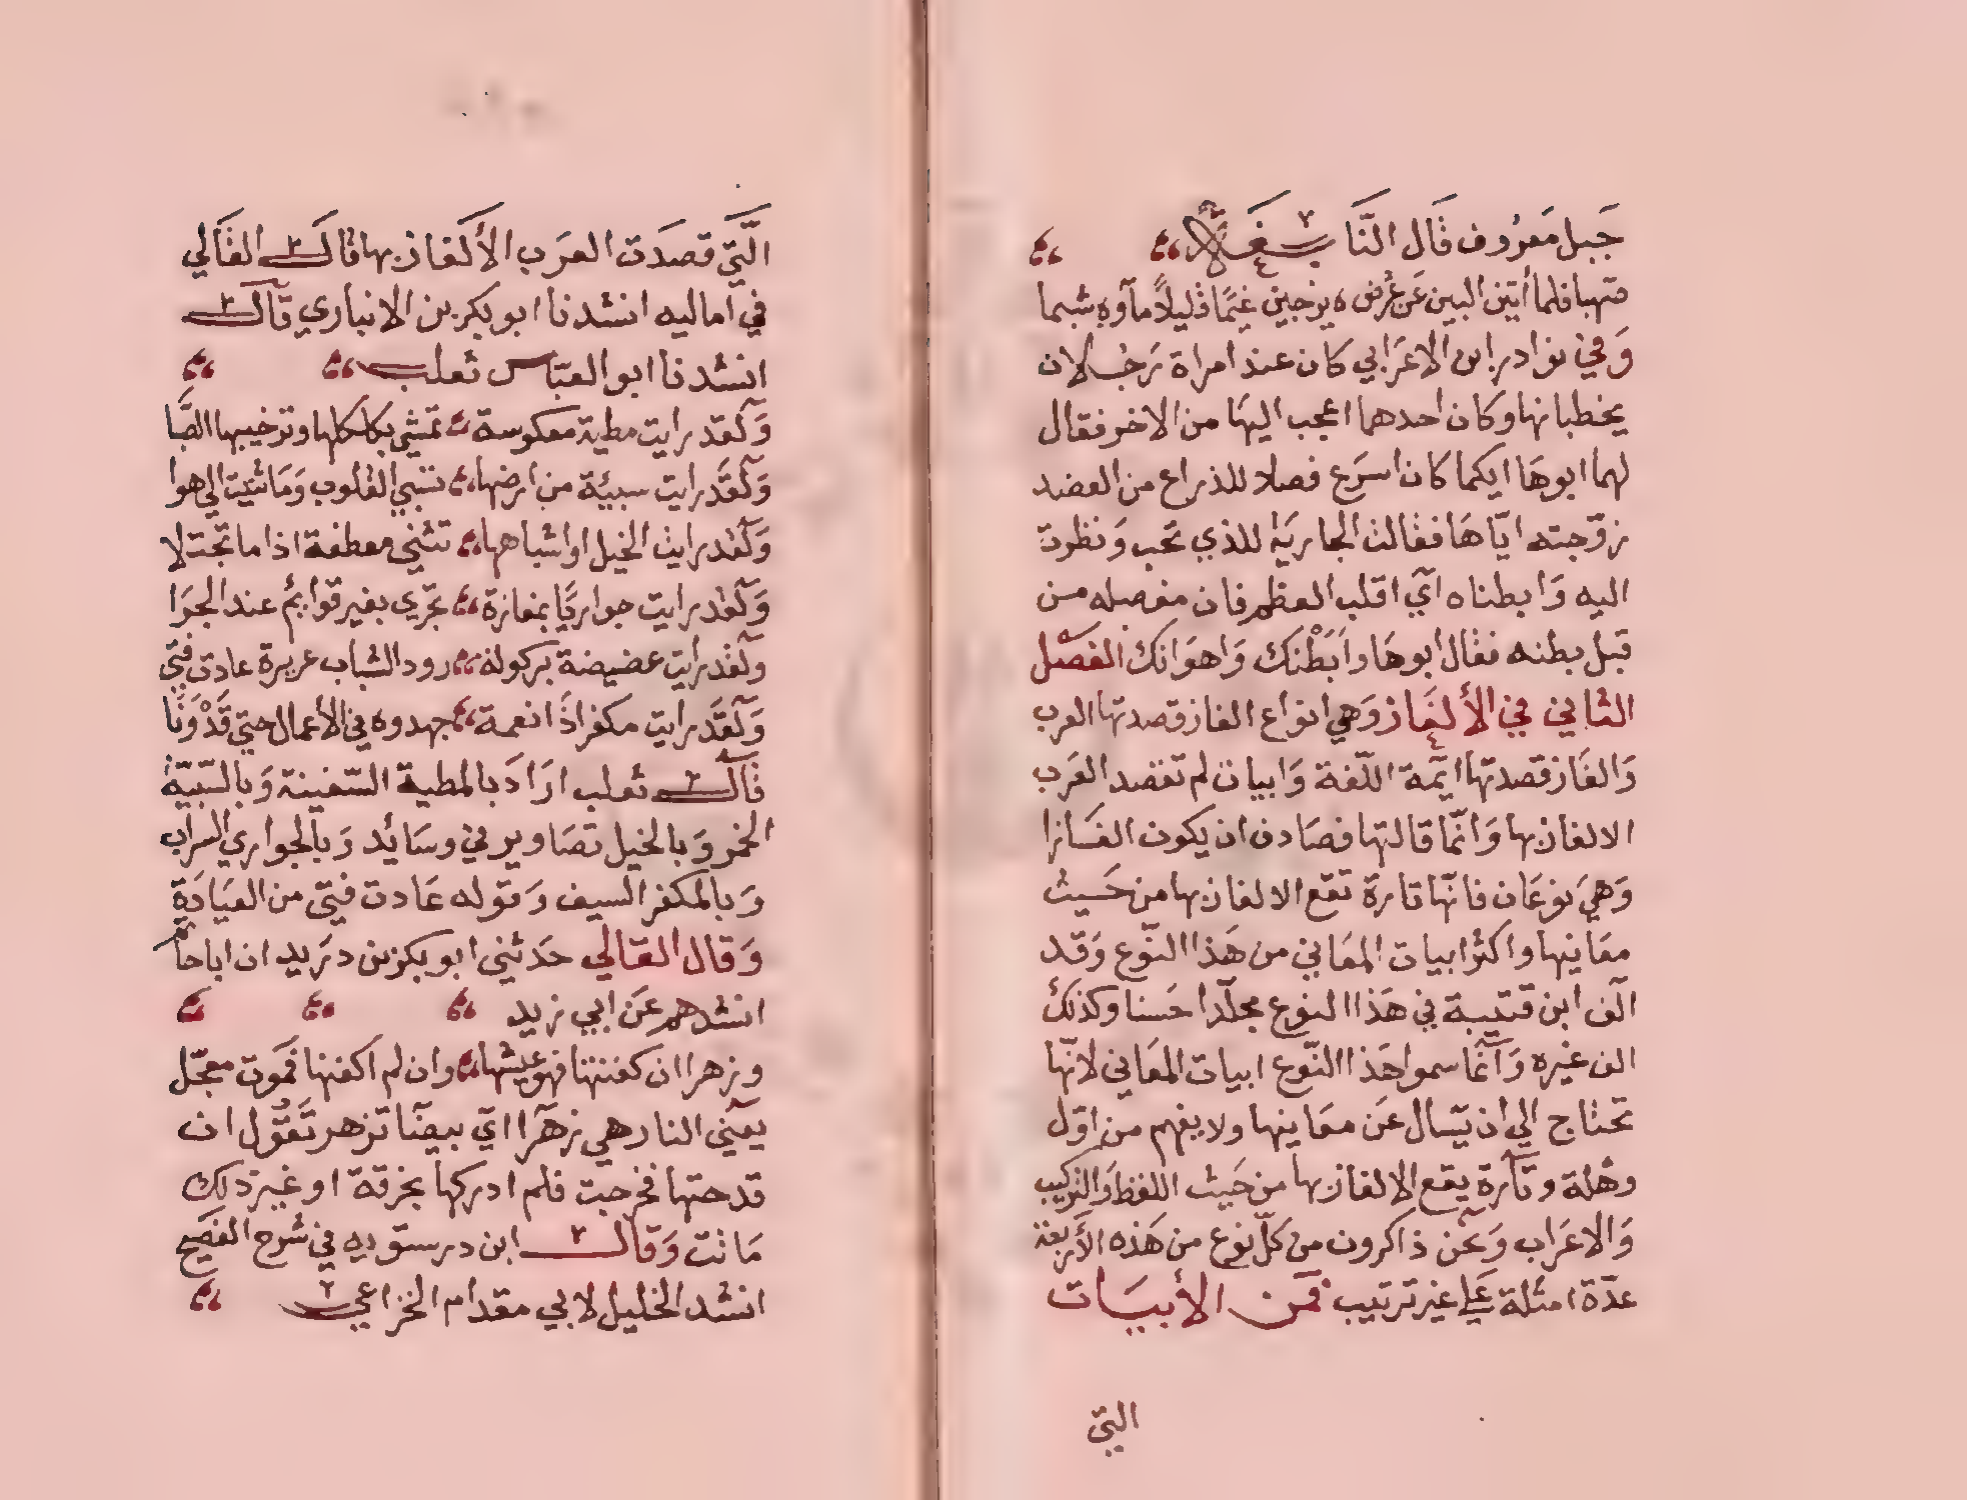 جَبل مَعرُوف قَال النَّابـــغَة
صهبا فلما أتين البين عَن عُرُض ه يزجين غيمًا قَليلاً مآوه شبما
وَفي نوادر ابن الاعرَابي كان عند امراة رَجُلان
يخطبانها وكان احدهما اعجب اليهَا من الاخر فقال
لهما ابوهَا ايكما كان اسرَع فصلا للذراع من العضد
زوّجته ايّاهَا فقالت الجاريَة للذي تحب وَنظرت
اليه وَابطناه آي اقلب العظم فان مفصله من
قبل بطنه فقال ابوهَا وابَطْنك وَاهوَانك الفصل
الثاني في الألغَاز وَهي انواع الغاز قصدتها العرب
وَالغَاز قصدتها ايمّة اللّغة وَابيات لم تقصد العَرب
الالغاز بها وَانّما قالتها فصَادف ان يكون الغَازا
وَهيَ نوعَان فانّها تارة تقع الالغاز بها من حَيث
معَانيها واكثر ابيات المعَاني من هَذا النّوع وَقد
الّف ابن قتيبة في هَذا النوع مجلّدا حَسنا وكذلك
الف غيره وَآنّما سموا هَذا النّوع ابيات المعَاني لانّها
تحتاج الي ان يسَال عَن معَانيها ولا يفهم من اوّل
وهلة وتآرة يقع الالغاز بها من حَيث اللفظ وَالتركيب
وَالاعرَاب وَنحن ذاكرون من كلّ نوع من هَذه الأربعة
عدّة امثلة عَلي غير ترتيب فمَن الأبيَات
التي
الَّتي قصَدَت العرَب الألغَاز بها قالـــ القَالي
في اماليه انشدنا ابو بكر بن الانباري قالـــ
انشدنا ابو العبّاس ثعلبـــ
وَلَقد رايت مطية معكوسة تمشي بكلكلها وتزجيها الصَّبا
وَلقَد رايت سبيئة من ارضها تسبي القلوب وَمَا تنيت الي هوا
وَلَقد رايت الخيل او اشباهها تثني معطفة اذا ما تجتلا
وَلَقد رايت جواريًا بمفازة تجري بغير قوايم عند الجرَا
ولقد رايت غضيضة بركولة رود الشباب غريرة عادت فتي
وَلَقَد رايت مكفرا ذَا نعمة جهدوه في الأعمال حتي قَدْ وَنَا
قَالـــ ثعلب ارَادَ بالمطية السّفينة وَبالسّبيّة
الخمر وَبالخيل تصَاوير في وسَائد وَبالجواري السراب
وَبالمكفر السيف وَقوله عَادت فتي من العيَادَة
وَقال القَالي حَدثني ابو بكر بن دريد ان ابا حا
انشدهم عَن ابي زيد
وزهرا ان كفنتها فهو عيشها وان لم اكفنها فموت معجّل
يعنَي النار هي زهرَا اي بيضَا تزهر تقُول ان
قدحتها فخرجت فلم ادركها بخرقة او غير ذلك
مَاتت وَقَالـــ ابن درستويه في شرح الفصيح
انشد الخليل لابي مقدام الخزاعي